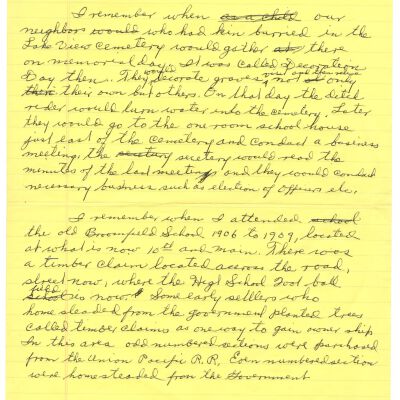 I remember when as a child our
neighbors would who had kin burried in the
Lake View Cemetery would gather there
on memorial day. It was called Decoration
Day then. They would decorate graves, not only
their own but others. On that day the ditch
rider would turn water into the cemetery. Later
they would go to the one room school house
just east of the cemetery and conduct a business
meeting. the would read the
minutes of the last meeting and they would conduct
necessary business such as election of officers etc.
I remember when I attended school
the old Broomfield School 1906 to 1909, located
at what is now 10th and main. There was
a timber claim located across the road,
street now, where the High School Foot ball
field is now. Some early setllers who
home steaded from the government planted trees
called timber claims as one way to gain owner ship.
In this area odd numbered sections were purchased
from the Union Pacific R.R. Even numbered section
were homesteaded from the Government